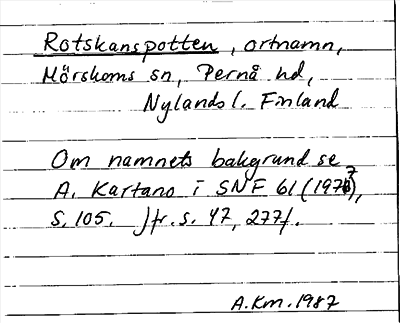 Rotskanspotten, ortnamn,
Mörskoms sn, Pernå hd,
Nylands l. Finland
Om namnets bakgrund se
A. Kartano i SNF 61 (1973),
S. 105. Jfr. s. 47, 277f.
A.Km. 1987